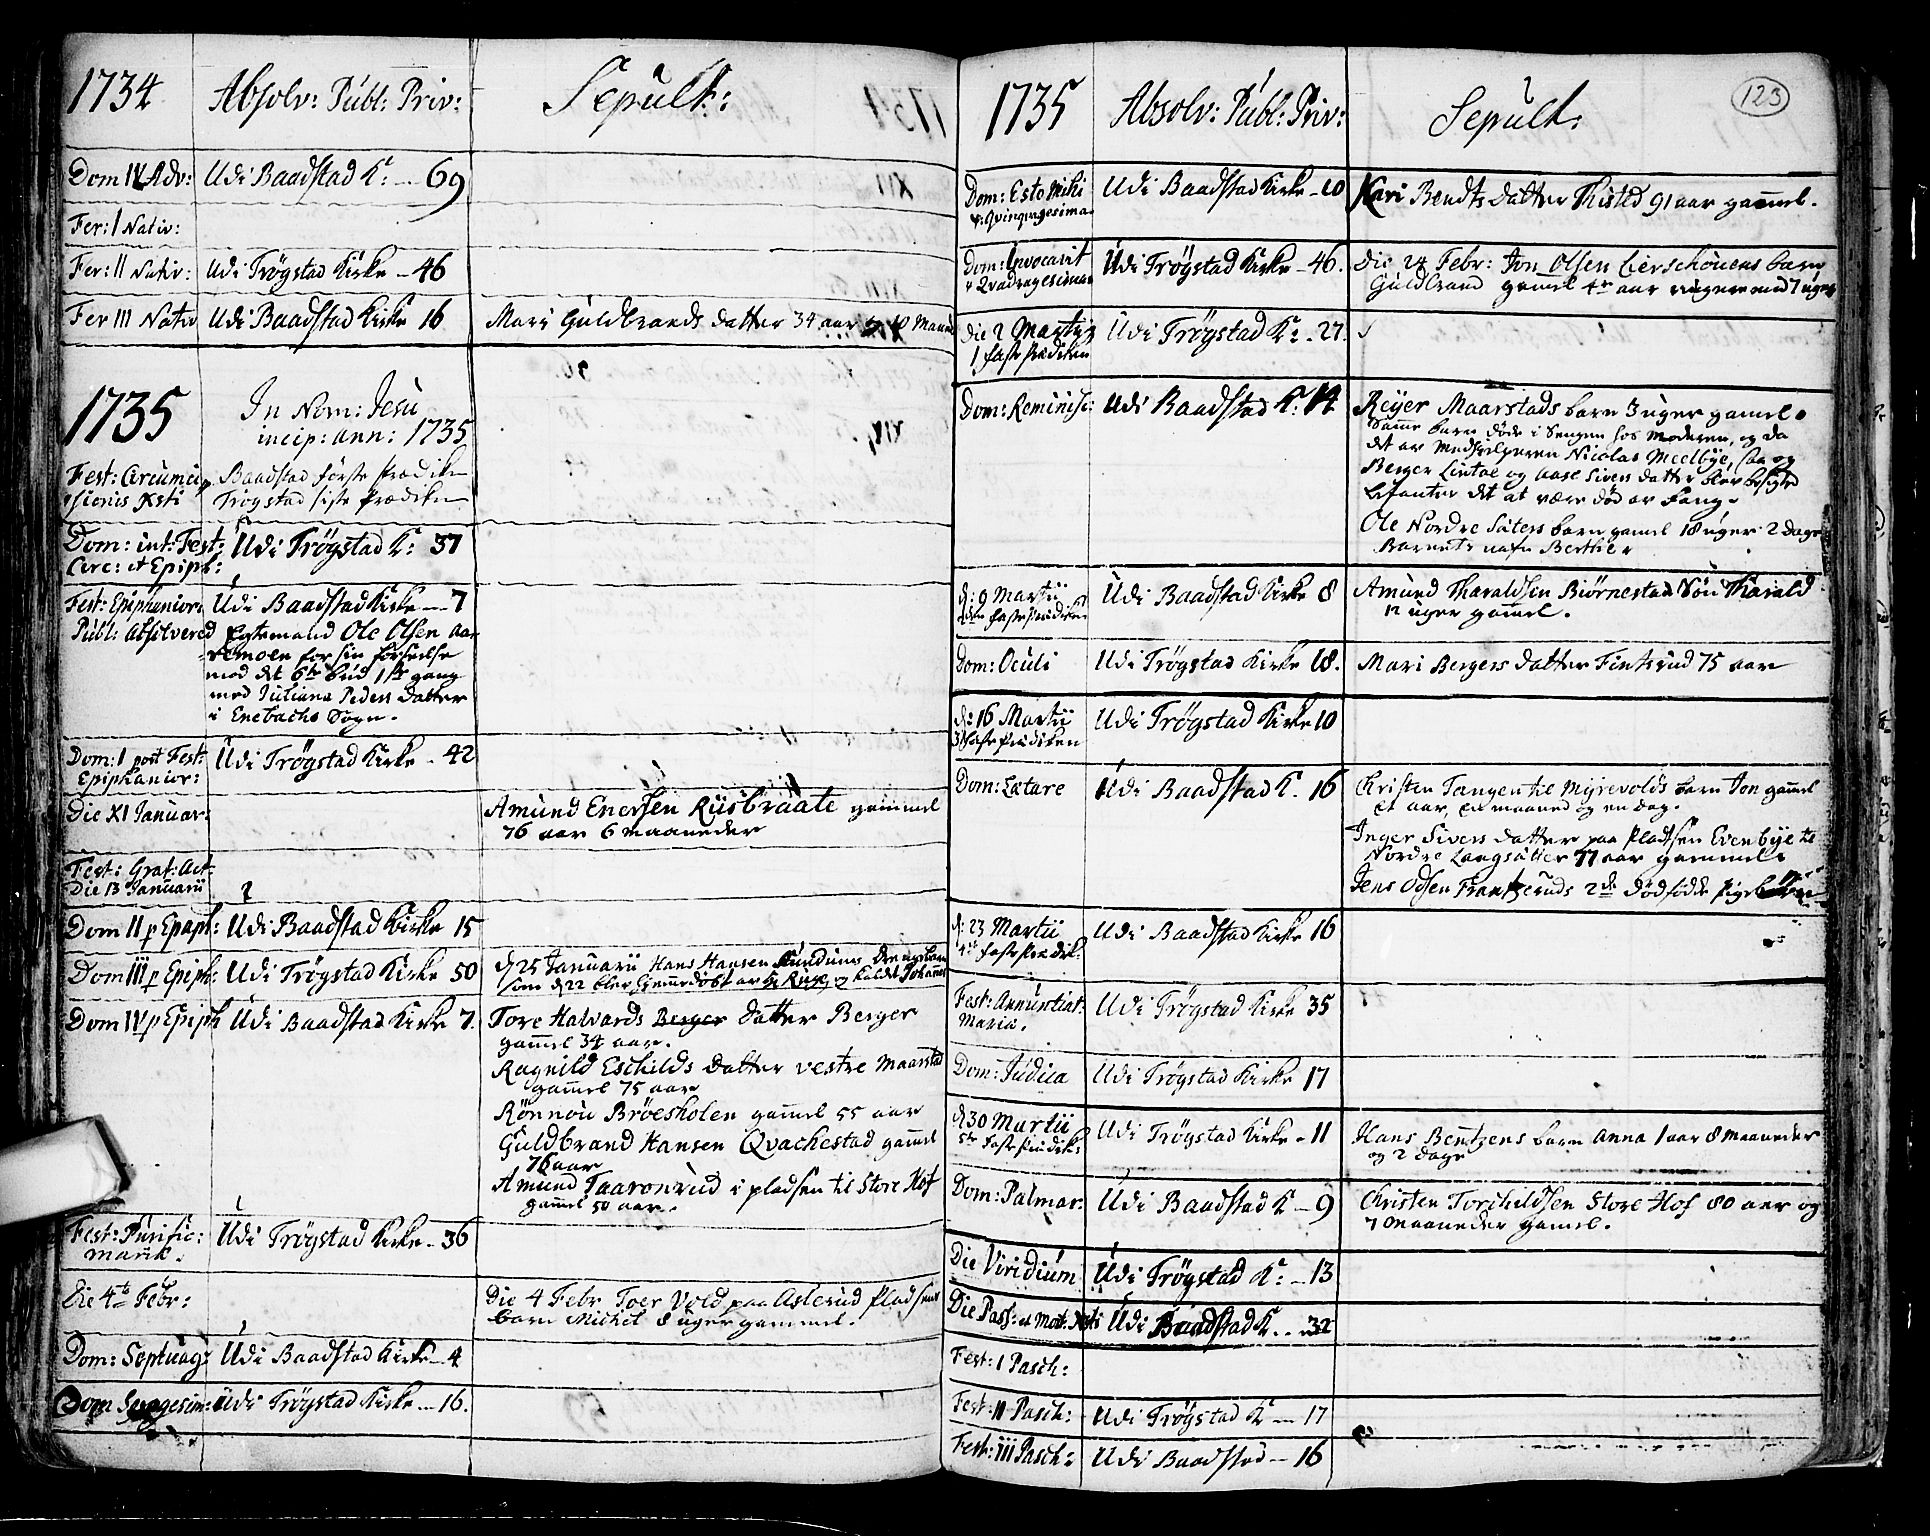 1734 Absolv: Publ: Priv: Sepult:
Dom IV Adv: Udi Baadstad K: — 69
Fer: I Nativ:
Fer: II Nativ: Udi Trøgstad Kirke — 46
Fer III Nativ Udi Baadstad Kirke 16 Mari Guldbrands datter 34 aar
1735 In Nom: Jesu
incip: ann: 1735
Fest: Circumcip Baadstad første prædiken
sionis Xsti Trøgstad siste prædiken
Dom: int: Fest: Udi Trøgstad K: 37
Circ: et Epiph:
Fest: Epiphanior: Udi Baadstad Kirke — 7
Publ: Absolvered Egtemand Ole Olsen Aar
remoen for sin forseelse
mod det 6te bud 1ste gang
med Juliana Peders datter
i Enebachs Sogn.
Dom: I post Fest: Udi Trøgstad Kirke - 42
Epiphanior:
Die XI Januar: Amund Enersen Riisbraate gammel
76 aar 6 maaneder
Fest: Grat: Act:
Die 13 Januarii
Dom II p Epiph: Udi Baadstad Kirke 15
Dom III p Epiph: Udi Trøgstad Kirke 50 d 25 Januarii Hans Hansen drengebarn
som d 22 blev hjemmedøbt kaldt Johannes
Dom IV p Epiph Udi Baadstad Kirke 7. Tore Halvards Berger datter Berger
gammel 34 aar.
Ragnild Eschilds datter vestre Maarstad
gammel 75 aar
Rønnou Brøesholen gammel 55 aar
Guldbrand Hansen Qvachestad gammel
76 aar
Amund Taaronrud i pladsen til Store Hof
gammel 50 aar.
Fest: Purific: Udi Trøgstad Kirke - 36
Mariæ.
Die 4te Febr: Die 4 Febr Toer Vold paa Asterud Pladsens
barn Michel 8 uger gammel.
Dom: Septuag: Udi Baadstad Kirke — 4
Dom Sexagesim: Udi Trøgstad Kirke — 16.
123
1735 Absolv: Publ: Priv: Sepult:
Dom: Esto Mihi Udi Baadstad Kirke - 10 Kari Bendts datter Thisted 91 aar gammel.
v: Qvinqvagesima
Dom: Invocavit Udi Trøgstad Kirke - 46. Die 24 Febr: Jon Olsen Lierschouens barn
v Qvadragesima Guldbrand gamel 4re aar ringere end 7 uger
Die 2 Martii Udi Trøgstad K: - 27.
1 fasteprædiken
Dom: Reminisc: Udi Baadstad K: 14 Reyer Maarstads barn 3 uger gamel.
Samme barn døde i Sengen hos moderen, og da
det av Medhielperen Nicolas Meelbye, saa og
Berger Lintoe og Aase Sivers datter blev besigted
befantes det at være død av fang.
Ole Nordre Säters barn gamel 18 uger 2 dage
Barnets nafn Berthe.
d: 9 Martii Udi Baadstad Kirke 8 Amund Tharaldsen Biørnestad Søn Tharald
2den fasteprædiken 12 uger gammel.
Dom: Oculi Udi Trøgstad Kirke 18. Mari Bergers datter Fintsrud 75 aar
d: 16 Martii Udi Trøgstad Kirke 10
3 fasteprædiken
Dom: Lætare Udi Baadstad K. 16 Christen Tangen til Myrevolds barn Jon gammel
et aar, en maaned og en dag.
Inger Sivers datter paa Pladsen Evenbye til
Nordre Langsätter 77 aar gammel.
Jens Olsen Frantzeruds 2de dødfødde pigebørn
d: 23 Martii Udi Baadstad Kirke 16
4de fasteprædik:
Fest: Annuntiat: Udi Trøgstad Kirke 35
Mariæ.
Dom: Judica Udi Trøgstad Kirke 17
d 30 Martii Udi Trøgstad Kirke - 11 Hans Bentzens barn Anna 1 aar 8 maaneder
5te fasteprædik: og 2 dage
Dom: Palmar: Udi Baadstad K — 9 Christen Torchildsen Store Hof 80 aar og
7 maaneder gamel.
Die Viridium Udi Trøgstad K: — 13
Die Pass: et Mort: Xsti Udi Baadstad K. . 32
Fest: I Pasch:
Fest: II Pasch: Udi Trøgstad K — 17
Fest: III Pasch: Udi Baadstad — 16